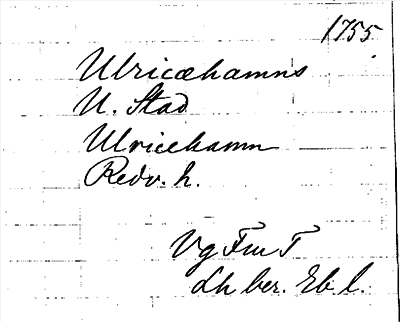 1755.
Ulricæhamns
U. Stad
Ulricehamn
Redv. h.
Vg Fm T
Lh ber. Eb l.